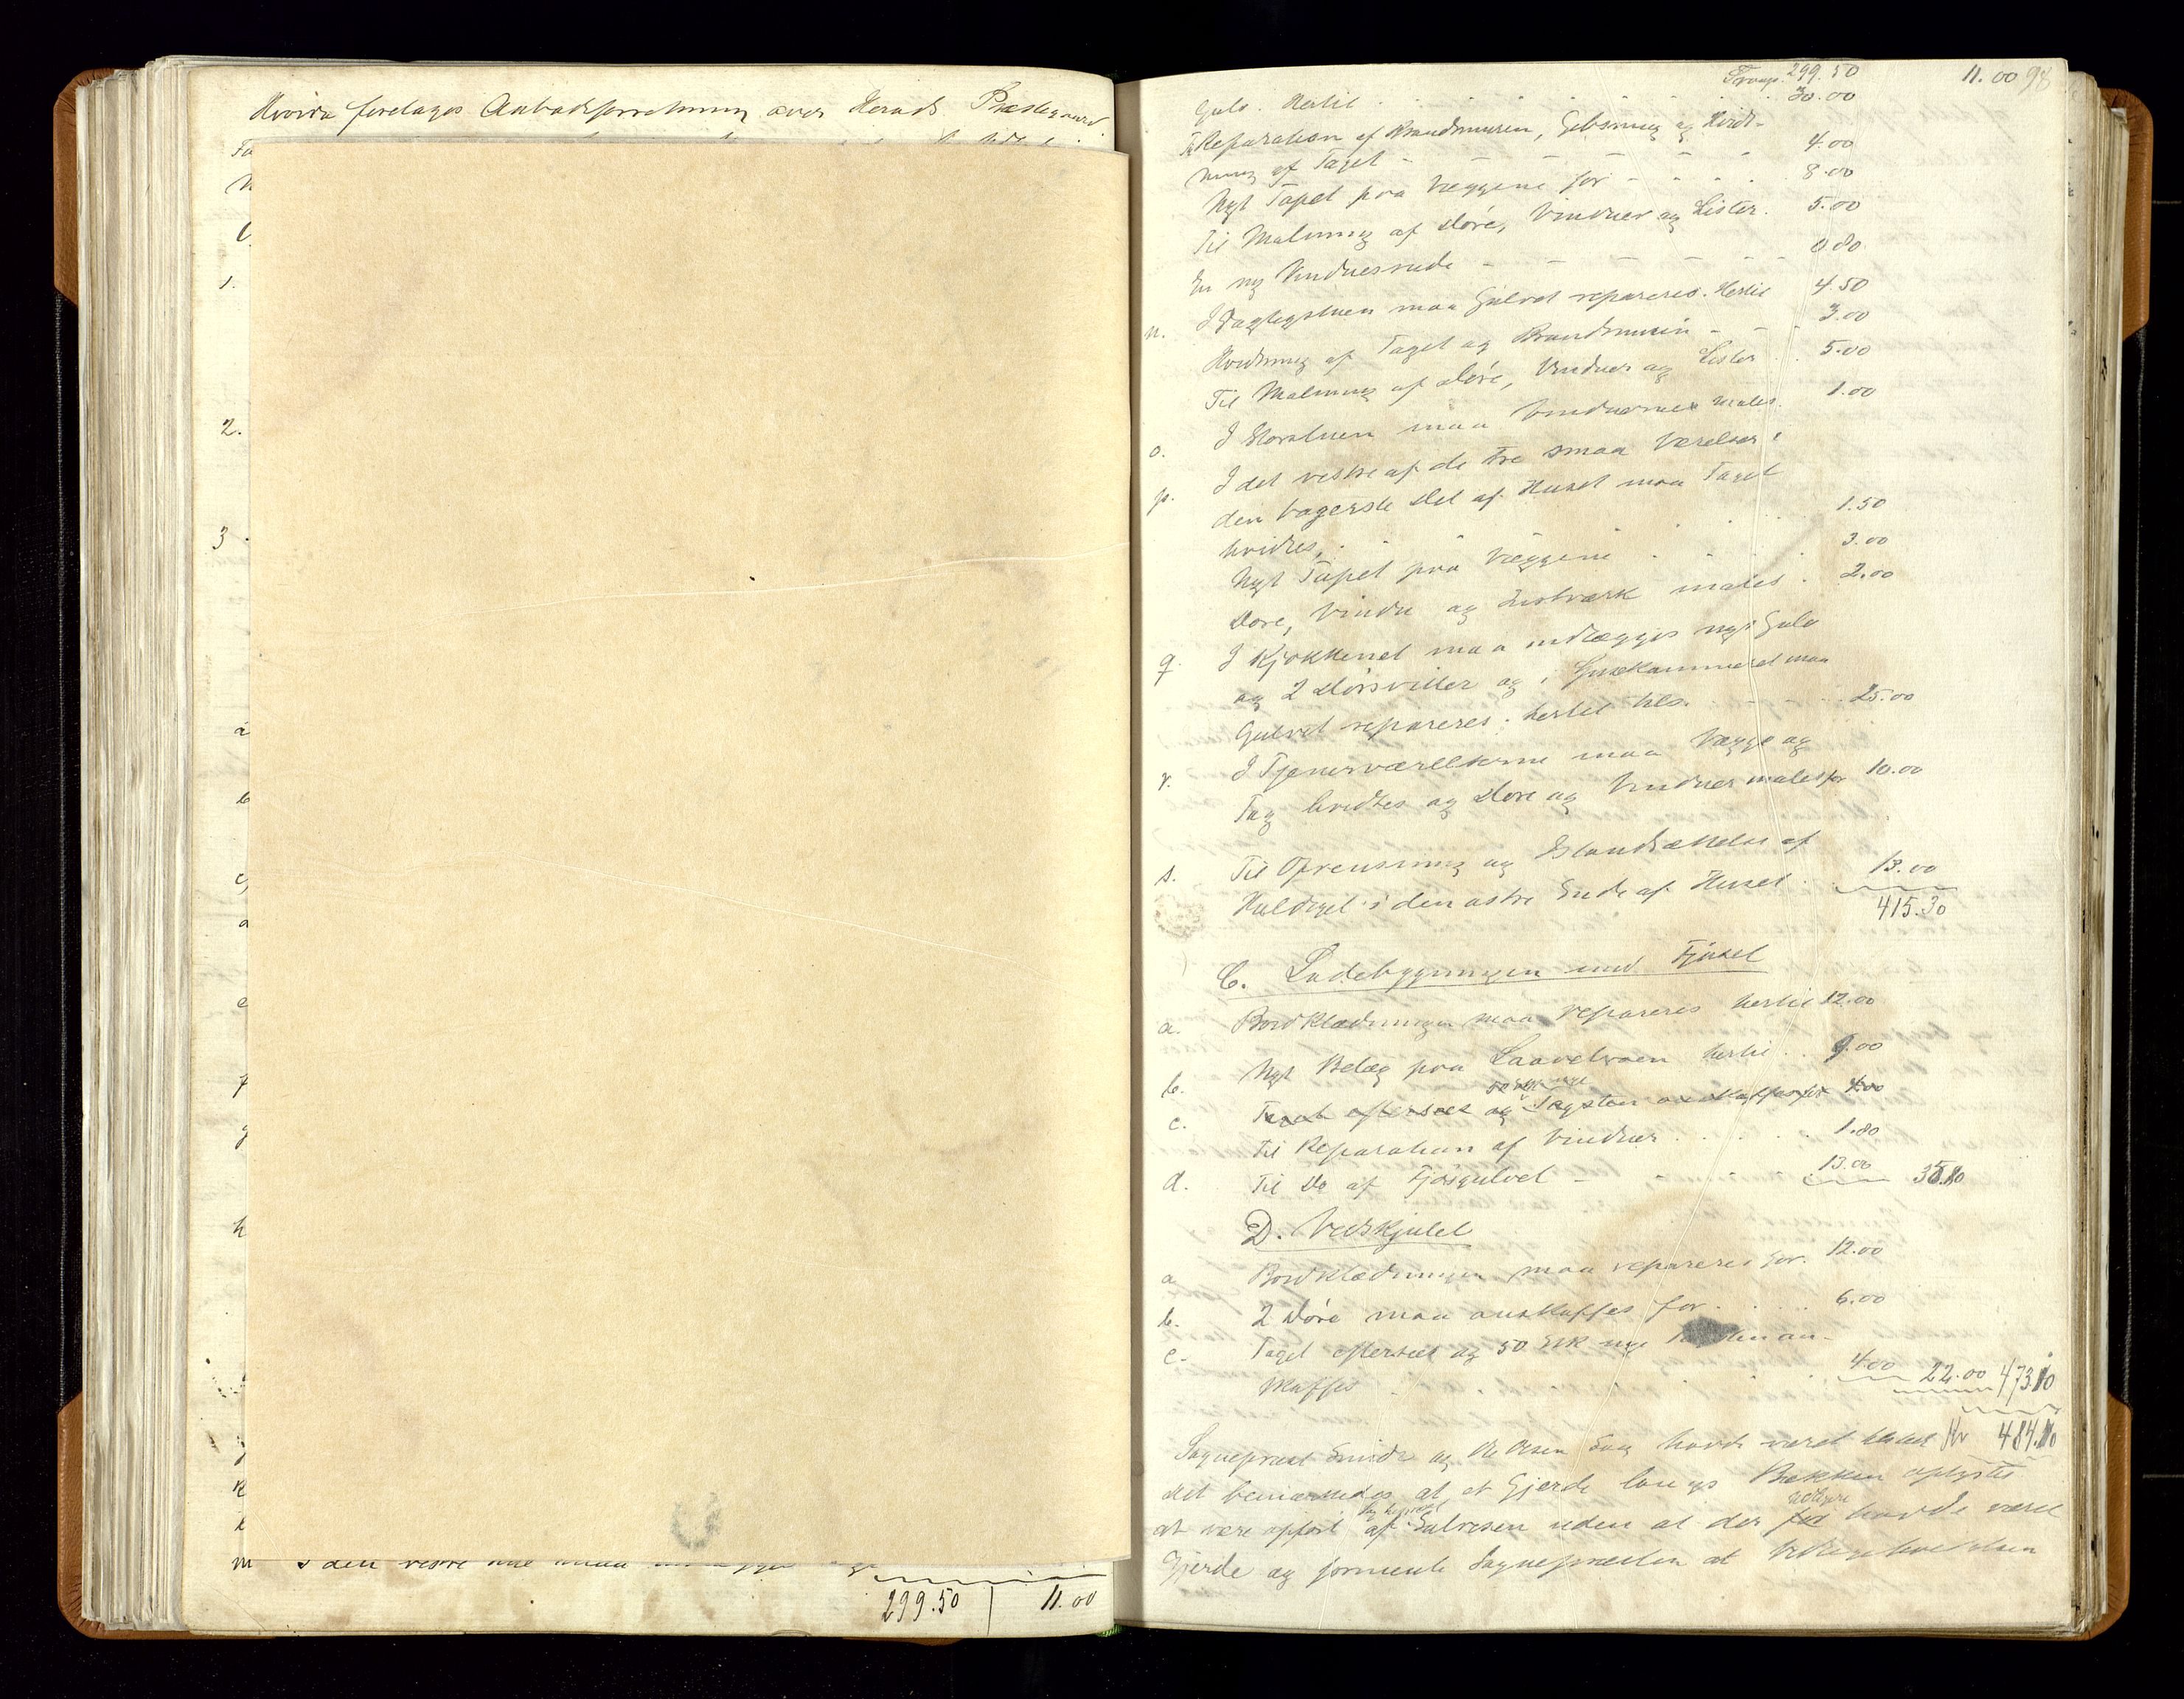 Hvorda foretages Aabodsforretning over Herads Præstegaard
1.
2.
3.
m I den vestre
299.50 | 11.00
Transp. 299.50 11.00 98
Gulv. Hertil . . . . . 30.00
Til Reparation af Brandmuren, Gibsning og Hvidt-
ning af Taget - - - - - 4.00
Nyt Tapet paa Væggene for - - - - 8.00
Til Maling af Døre, Vinduer og Lister. 5.00
En ny Vinduesrude - - - - - - 0.80
n. I Dagligstuen maa Gulvet repareres. Hertil 4.50
Hvidtning af Taget og Brandmuren - - - 3.00
Til Maling af Døre, Vinduer og Lister . . 5.00
o. I Storstuen maa Vinduerne males. 1.00
p. I det vestre af de tre smaa Værelser i
den bagerste Del af Huset maa Taget
hvidtes, . . . . . . 1.50
Nyt Tapet paa Væggene . . . . 3.00
Døre, Vindu og Listværk males . 2.00
q. I Kjøkkenet maa indlægges nyt Gulv
og 2 Dørsviller og i Spisekammeret maa
Gulvet repareres; hertil tils. - - - . . 25.00
r. I Tjenerværelserne maa Vægge og
Tag hvidtes og Døre og Vinduer males for 10.00
s. Til Oprensning og Istandsættelse af
Huldiget i den østre Ende af Huset. 13.00
415.30
C. Ladebygningen med Fjøset
a. Bordklædningen maa repareres hertil 12.00
b. Nyt Belæg paa Laavebroen hertil . . 9.00
c. Taget eftersees og Tagsten anskaffes for 4.00
Til Reparation af Vinduer . . . . . . 1.80
d. Til Do af Fjøsgulvet - - - 13.00 35.80
D. Vedskjulet
a Bordklædningen maa repareres for. 12.00
b. 2 Døre maa anskaffes for . . . . . 6.00
c. Taget eftersees og 50 Stk nye an-
skaffes - . . . . . 4.00 22.00 473.10
Sogneprest Smide og Ole Olsen Sag havde været tilstede Kr 484.10
det bemærkedes at et Gjerde langs Bækken oplystes
at være opført af Salvesen uden at der havde været
Gjerde og formente Sognepresten at